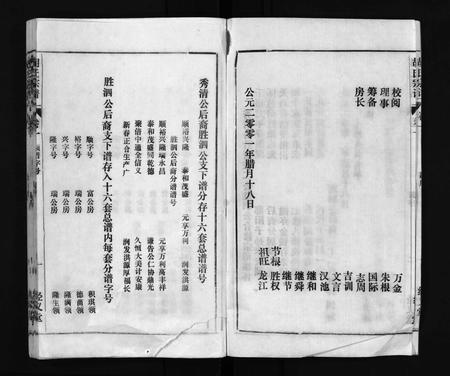 校阅 万金
理事 朱根
筹备 国际
房长 志周
吉训
文言
汉池
继和
继舜
继节
节根 胜权
祖旺 龙江
公元二零零一年腊月十八日
秀清公后裔胜泗公支下谱分存十六套总谱谱号
顺裕兴隆 泰和茂盛 元亨万利 润发洪源
胜泗公后裔分谱谱号
顺裕兴隆瑞永昌 元亨万利高丰祥
泰和茂盛同乾德 谦告公仁协鼎光
聚倍中通全信义 久恒大美计安康
新春正合生产广 润发洪源厚福长
胜泗公后裔支下谱存入十六套总谱内每套分谱字号
顺字号 富公房 积琪领
裕字号 瑞公房 德萬领
兴字号 瑞公房 隆满领
隆字号 瑞公房 隆生领